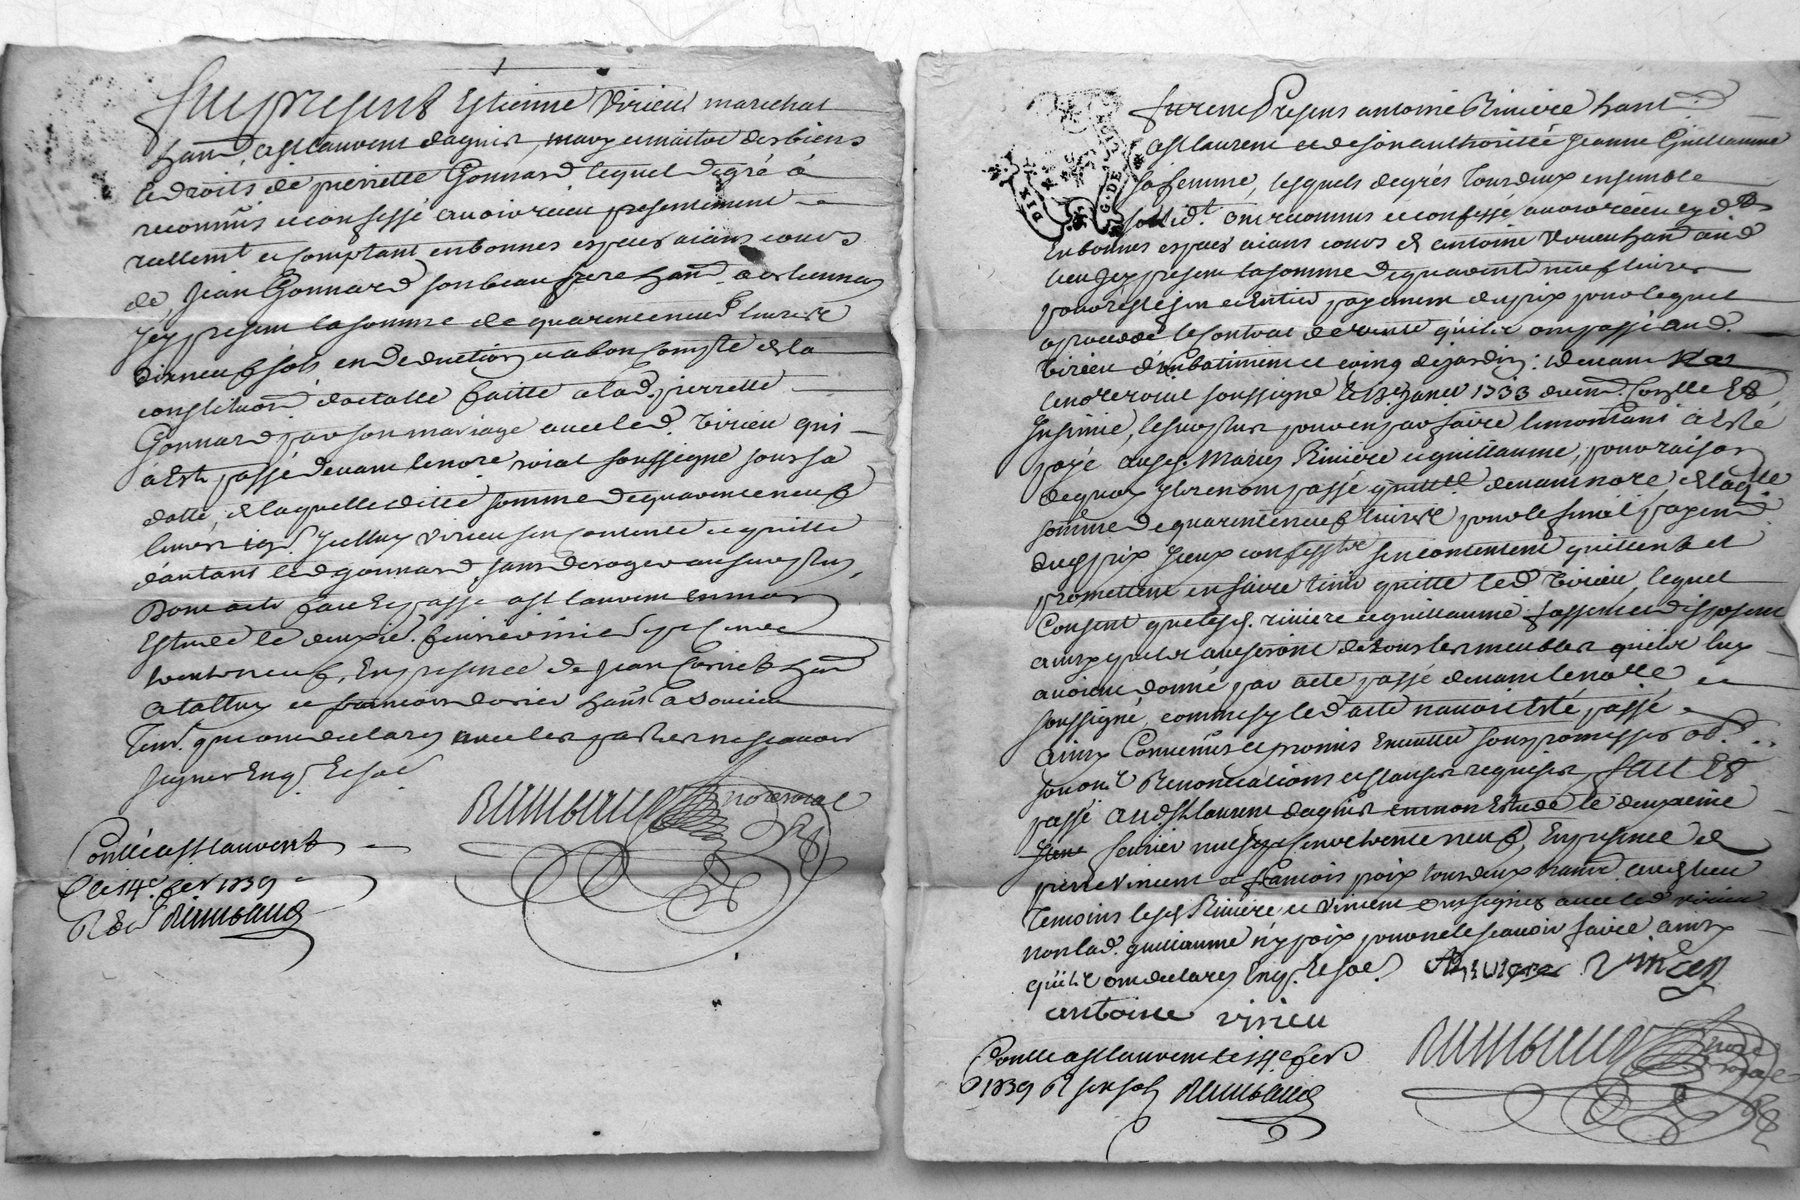 fut present Estienne Virieu marechal
hant a st laurent dagnis, mary et maitre des biens
et droits de pierrette Gonnard lequel de gré a
reconnus et confessé avoir receu presentement
reellemt et comptant en bonnes especes aians cours
de Jean Gonnard son beau frere hant
jcy present la somme de quarente neuf livres
dixneuf sols en deduction et a bon compte de la
constituon dotalle faitte a lad. pierrette
Gonnard par son mariage avec led. Virieu qui
a esté passé devant le nore roial soussigné sous sa
datte, de laquelle ditte somme de quarente neuf
livres 19 s. jcelluy Virieu sen contente et quitte
dautant led gonnard, sans deroger au surplus,
Dont acte fait et passé a st laurent en mon
Estude le deuxie. fevrier mil sept cent
trente neuf, En presence de Jean hant
et francois hants a
Tem. qui ont declaré avec les parties ne scavoir
signer Enq. et soe.
Rimbaud nore roial
Conllé a st laurent
le 14e fev 1739
R Rimbaud
furent Presens antoine Riviere hant
a st laurent et de son authoritée Jeanne Guillaume
sa femme, lesquels de grés tous deux ensemble
solidt. ont reconnus et confessé avoir receu
En bonnes especes aians cours de antoine Virieu hant aud
lieu jcy present la somme de quarente neuf livres
pour reste et entier payement du prix pour lequel
a procedé le contrat de vente quils ont passé aud.
Virieu d'un batiment et coing de jardin: devant
le nore roial soussigné le janer 1733 duemt. Conllé et
Insinué, le surplus pour en parfaire le montant a esté
payé auxd. Mariés Riviere et guillaume, pour raison
de quoy ils en ont passé quittce devant nore de laqlle
somme de quarente neuf livres pour le final payemt
dud prix jceux confessants sen contentent quittent et
promettent en faire tenir quitte led Virieu, lequel
Consent que lesd. riviere et guillaume fassent et disposent
ainsy quils aviseront de tous les meubles quils luy
avoient donné par acte passé devant le nore
soussigné, comme sy led acte navoit esté passé
ainsy Convenus et promis Executter sous promesses obon
soumon Renonciations et clauses requises, fait et
passé aud st laurent dagnis en mon Estude le deuxieme
fevrier mil sept cent trente neuf, En presence de
pierre Vincent et francois poix tous deux hants aud lieu
Temoins lesd Riviere et Vincent ont signés avec led virieu
non lad. guillaume ny poix pour ne le scavoir faire ainsy
quils ont declaré Enq. et soe. A Riviere Vincen
antoine virieu
Rimbaud nore roial
Conllé a st laurent le 14e fev
1739 R six sols Rimbaud